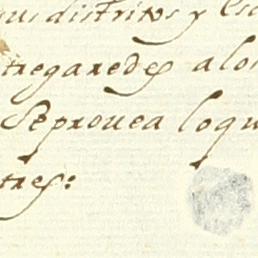 sus distritos y esc
tregaredes a los
Se prouea loqu
tres: